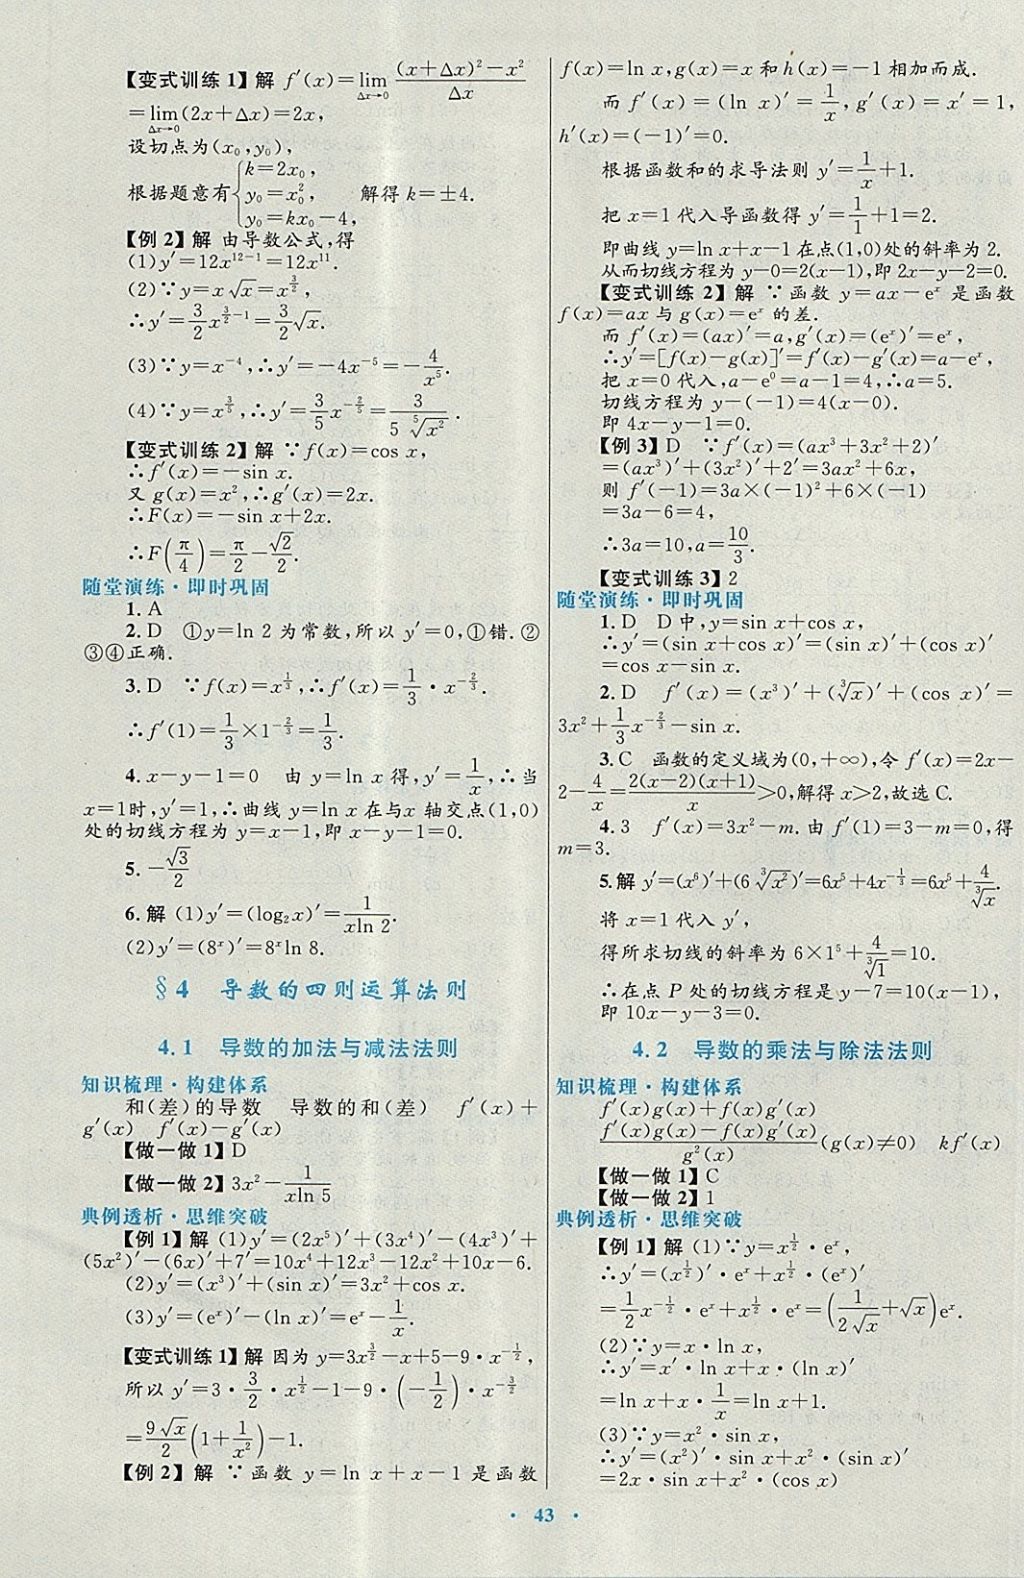 【变式训练 1】解 f′(x)=lim(Δx→0) ((x+Δx)²-x²)/Δx
=lim(Δx→0)(2x+Δx)=2x,
设切点为(x₀,y₀),
根据题意有{k=2x₀, y₀=x₀², y₀=kx₀-4, 解得 k=±4.
【例 2】解 由导数公式,得
(1)y′=12x¹²⁻¹=12x¹¹.
(2)∵y=x√x=x^(3/2),
∴y′=(3/2)x^(3/2-1)=(3/2)√x.
(3)∵y=x⁻⁴,∴y′=-4x⁻⁵=-4/x⁵.
(4)∵y=x^(3/5),∴y′=(3/5)x^(-2/5)=3/(5 ⁵√(x²)).
【变式训练 2】解 ∵f(x)=cos x,
∴f′(x)=-sin x.
又 g(x)=x²,∴g′(x)=2x.
∴F(x)=-sin x+2x.
∴F(π/4)=π/2-√2/2.
随堂演练·即时巩固
1.A
2.D ①y=ln 2 为常数,所以 y′=0,①错.②
③④正确.
3.D ∵f(x)=x^(1/3),∴f′(x)=1/3·x^(-2/3).
∴f′(1)=1/3×1^(-2/3)=1/3.
4.x-y-1=0 由 y=ln x 得,y′=1/x,∴当
x=1时,y′=1,∴曲线 y=ln x 在与x 轴交点(1,0)
处的切线方程为 y=x-1,即 x-y-1=0.
5.-√3/2
6.解 (1)y′=(log₂x)′=1/(xln 2).
(2)y′=(8ˣ)′=8ˣln 8.
§4 导数的四则运算法则
4.1 导数的加法与减法法则
知识梳理·构建体系
和(差)的导数 导数的和(差) f′(x)+
g′(x) f′(x)-g′(x)
【做一做 1】D
【做一做 2】3x²-1/(xln 5)
典例透析·思维突破
【例 1】解 (1)y′=(2x⁵)′+(3x⁴)′-(4x³)′+
(5x²)′-(6x)′+7′=10x⁴+12x³-12x²+10x-6.
(2)y′=(x³)′+(sin x)′=3x²+cos x.
(3)y′=(eˣ)′-(ln x)′=eˣ-1/x.
【变式训练 1】解 因为 y=3x^(3/2)-x+5-9·x^(-1/2),
所以 y′=3·3/2·x^(1/2)-1-9·(-1/2)·x^(-3/2)
=(9√x/2)(1+1/x²)-1.
【例 2】解 ∵函数 y=ln x+x-1 是函数
f(x)=ln x,g(x)=x 和 h(x)=-1 相加而成.
而 f′(x)=(ln x)′=1/x,g′(x)=x′=1,
h′(x)=(-1)′=0.
根据函数和的求导法则 y′=1/x+1.
把 x=1 代入导函数得 y′=1/1+1=2.
即曲线 y=ln x+x-1 在点(1,0)处的斜率为 2.
从而切线方程为 y-0=2(x-1),即 2x-y-2=0.
【变式训练 2】解 ∵函数 y=ax-eˣ 是函数
f(x)=ax 与 g(x)=eˣ 的差.
而 f′(x)=(ax)′=a,g′(x)=(eˣ)′=eˣ,
∴y′=[f(x)-g(x)]′=f′(x)-g′(x)=a-eˣ,
把 x=0 代入,a-e⁰=a-1=4,∴a=5.
切线方程为 y-(-1)=4(x-0).
即 4x-y-1=0.
【例 3】D ∵f′(x)=(ax³+3x²+2)′
=(ax³)′+(3x²)′+2′=3ax²+6x,
则 f′(-1)=3a×(-1)²+6×(-1)
=3a-6=4,
∴3a=10,a=10/3.
【变式训练 3】2
随堂演练·即时巩固
1.D D 中,y=sin x+cos x,
∴y′=(sin x+cos x)′=(sin x)′+(cos x)′
=cos x-sin x.
2.D f′(x)=(x³)′+(³√x)′+(cos x)′=
3x²+(1/3)x^(-2/3)-sin x.
3.C 函数的定义域为(0,+∞),令 f′(x)=2x-
2-4/x=2(x-2)(x+1)/x>0,解得 x>2,故选 C.
4.3 f′(x)=3x²-m.由 f′(1)=3-m=0,得
m=3.
5.解 y′=(x⁶)′+(6 ³√(x²))′=6x⁵+4x^(-1/3)=6x⁵+4/³√x.
将 x=1 代入 y′,
得所求切线的斜率为 6×1⁵+4/³√1=10.
∴在点 P 处的切线方程是 y-7=10(x-1),
即 10x-y-3=0.
4.2 导数的乘法与除法法则
知识梳理·构建体系
f′(x)g(x)+f(x)g′(x)
(f′(x)g(x)-f(x)g′(x))/g²(x)(g(x)≠0) kf′(x)
【做一做 1】C
【做一做 2】1
典例透析·思维突破
【例 1】解 (1)∵y=x^(1/2)·eˣ,
∴y′=(x^(1/2))′·eˣ+x^(1/2)·(eˣ)′
=(1/2)x^(-1/2)·eˣ+x^(1/2)·eˣ=(1/(2√x)+√x)eˣ.
(2)∵y=x·ln x,
∴y′=x′·ln x+x·(ln x)′
=ln x+x·1/x=ln x+1.
(3)∵y=x²·sin x,
∴y′=(x²)′·sin x+x²·(sin x)′
=2x·sin x+x²·(cos x)
· 43 ·